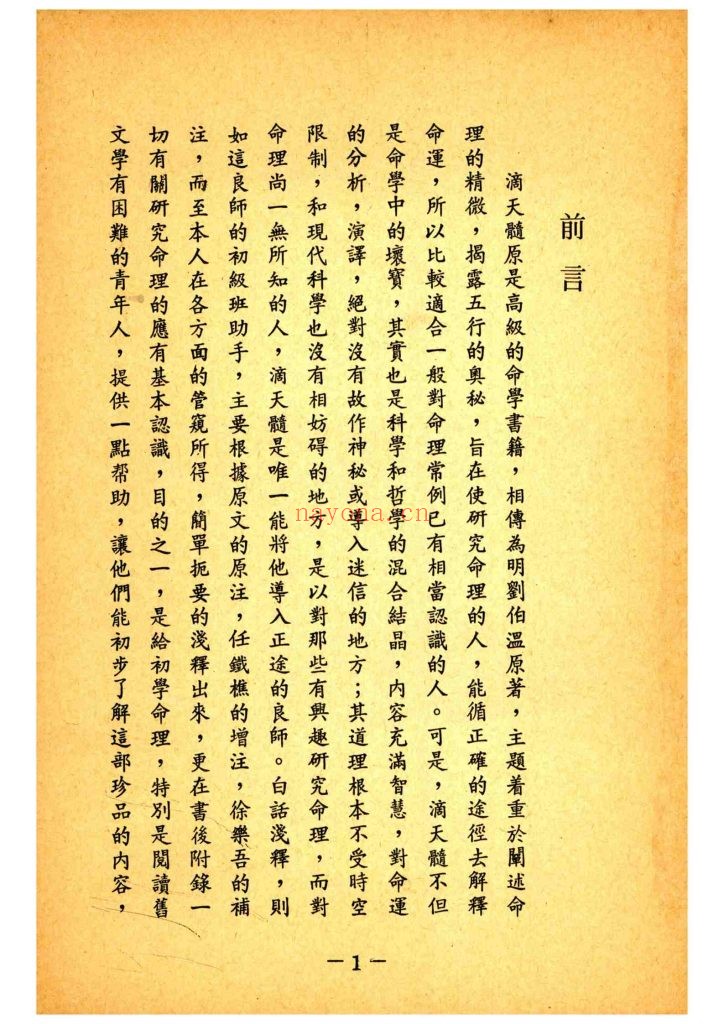 前言
滴天髓原是高級的命學書籍，相傳為明劉伯溫原著，主題着重於闡述命
理的精微，揭露五行的奧秘，旨在使研究命理的人，能循正確的途徑去解釋
命運，所以比較適合一般對命理常例已有相當認識的人。可是，滴天髓不但
是命學中的壞寶，其實也是科學和哲學的混合結晶，内容充滿智慧，對命運
的分析，演譯，絕對沒有故作神秘或導入迷信的地方；其道理根本不受時空
限制，和現代科學也沒有相妨碍的地方，是以對那些有興趣研究命理，而對
命理尚一無所知的人，滴天髓是唯一能將他導入正途的良師。白話淺釋，則
如這良師的初級班助手，主要根據原文的原注，任鐵樵的增注，徐樂吾的補
注，而至本人在各方面的管窺所得，簡單扼要的淺釋出來，更在書後附錄一
切有關研究命理的應有基本認識，目的之一，是給初學命理，特別是閱讀舊
文學有困難的青年人，提供一點帮助，讓他們能初步了解這部珍品的内容，
nayona.cn
－1－